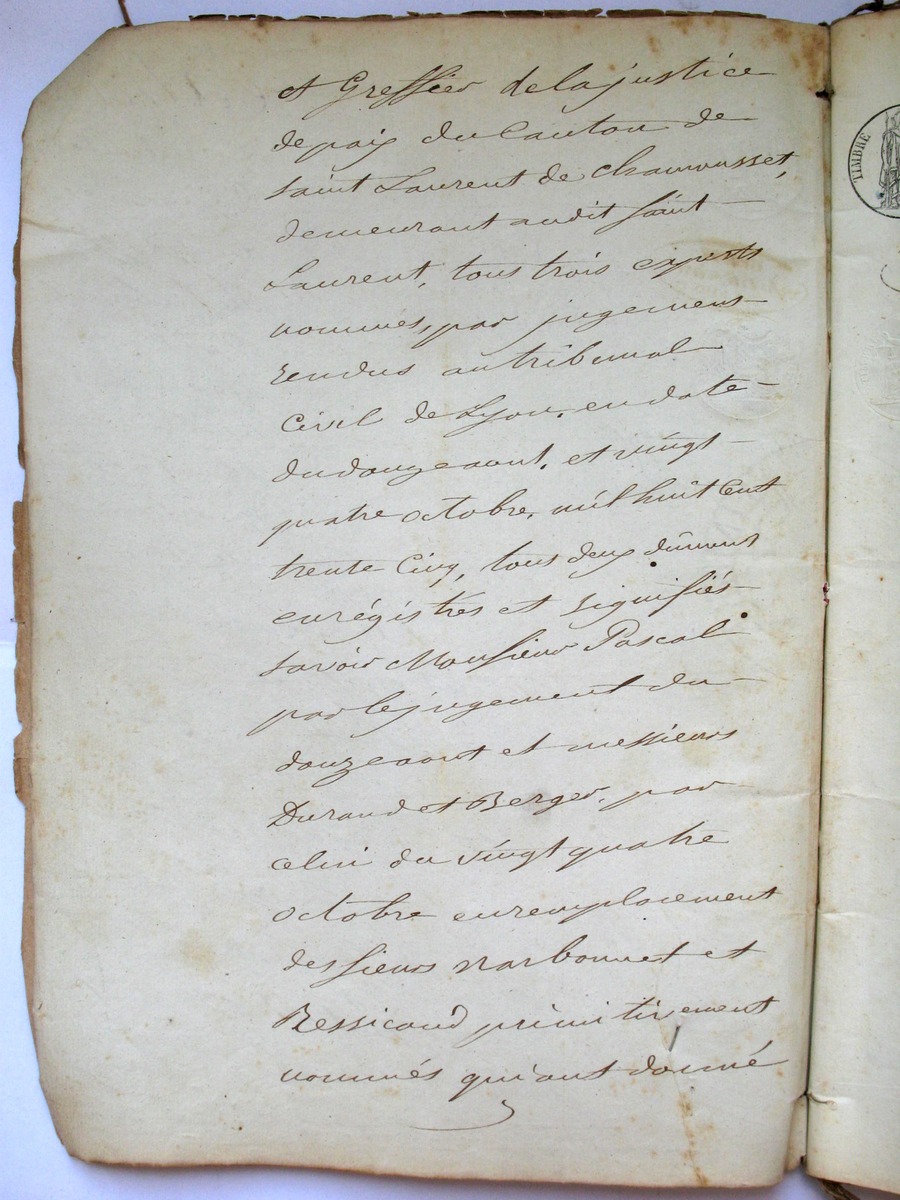 et Greffier de la justice
de paix du Canton de
saint Laurent de Chamousset,
demeurant audit saint
Laurent, tous trois experts
nommés, par jugemens
rendus au tribunal
Civil de Lyon, en date
du douze aout, et vingt
quatre octobre, mil huit Cent
trente Cinq, tous deux dûment
enrégistrés et signifiés
savoir Monsieur Pascal
par le jugement du
douze aout et messieurs
Durand et Berger, par
celui du vingt quatre
octobre en remplacement
des sieurs Narbonnet et
Ressicaud primitivement
nommés qui ont donné
TIMBRE